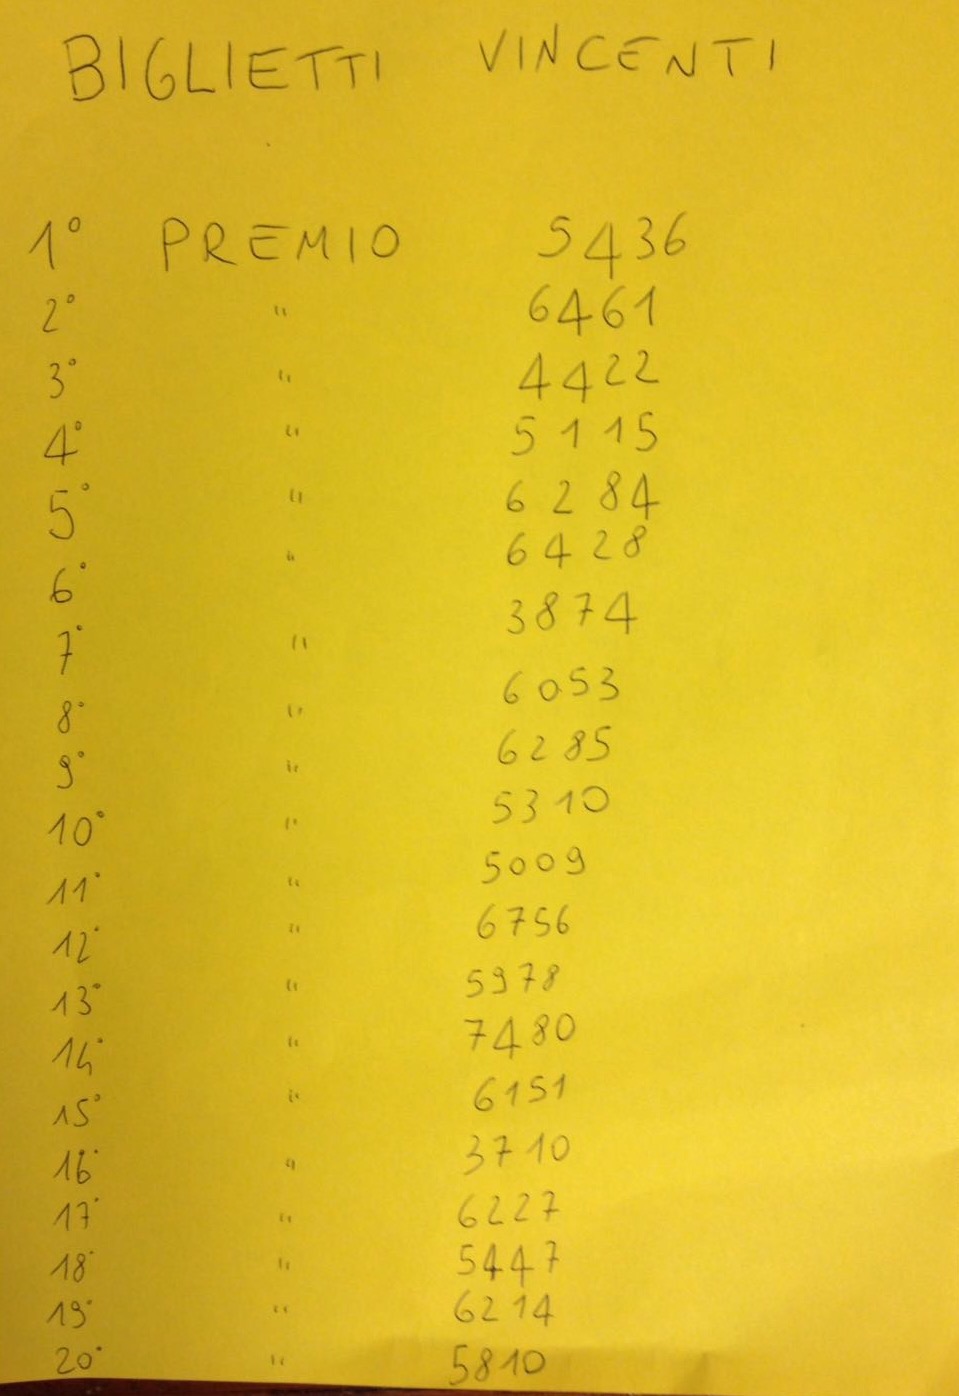 BIGLIETTI VINCENTI
1° PREMIO 5436
2° " 6461
3° " 4422
4° " 5115
5° " 6284
6° " 6428
7° " 3874
8° " 6053
9° " 6285
10° " 5310
11° " 5009
12° " 6756
13° " 5978
14° " 7480
15° " 6151
16° " 3710
17° " 6227
18° " 5447
19° " 6214
20° " 5810